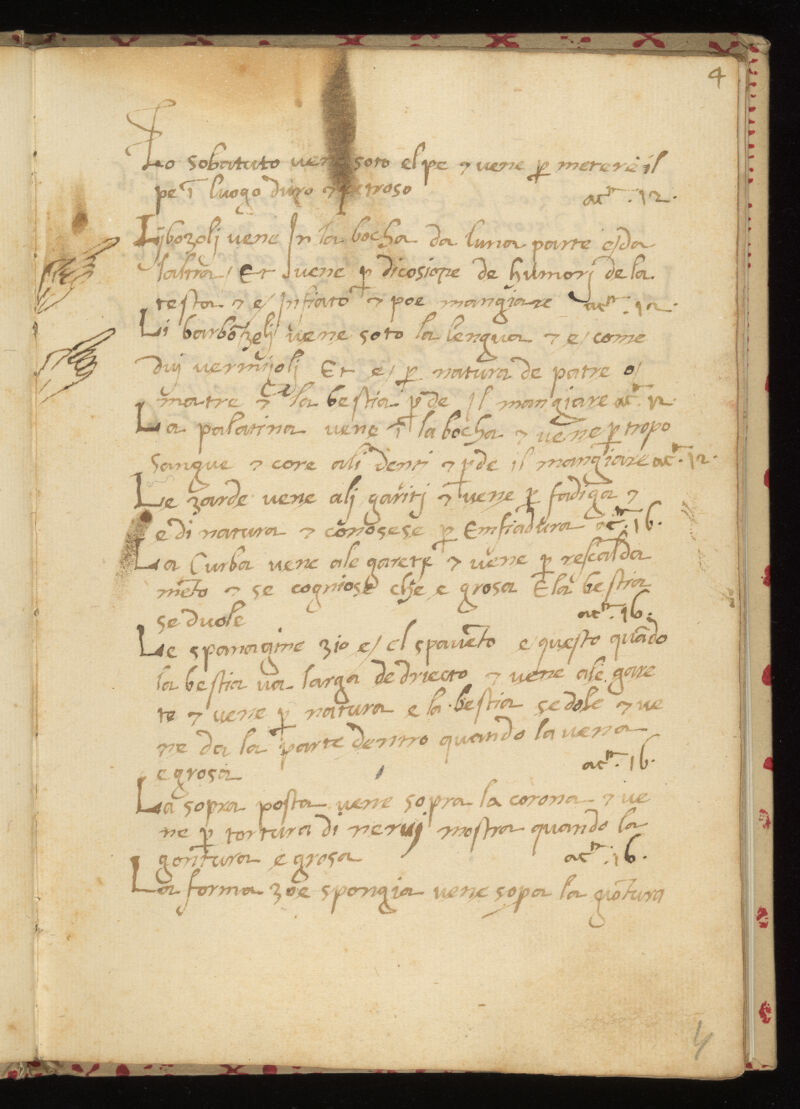 4
Lo sobatuto vene soto el pe & vene p̱ metere il
pe ī luogo duro & petroso ac̄t. 12.
Libozoli vene In la bocha da luna parte e/ da
laltra/ Et vene p̱ dicosione de humorj de la
testa & e/ Infiato & poe mangiare ac̄t. 12.
Li barbōzelj vene soto la lengua & e/ come
duj vermijolj Et e/ p̱ natura de patre o/
matre & la bestia p̱de il mangiare ac̄t. 12.
La palatina vene ī la bocha & vene p̱ tropo
sangue & core ali denti & p̱de il mangiare ac̄t. 12.
Le zarde vene alj garitj & vene p̱ fadiga &
e di natura & cōnosese p̱ Emfiadura ac̄t. 16.
La Curba vene ale garete & vene p̱ rescalda
mēto & se cogniose che e grosa E la bestia
se duole ac̄t. 16.
Le spanagine zio e/ el spavēto e questo quādo
la bestia va larga de driecto & vene ale gare
te & vene p̱ natura e la bestia se dole & ve
ne da la parte dentro quando la vena
e grosa ac̄t. 16.
La sopra posta vene sopra la corona & ve
ne p̱ tortura di neruj mostra quando la
gontura e grosa ac̄t. 16.
La forma zoe spongia vene sopa la giōtura
4